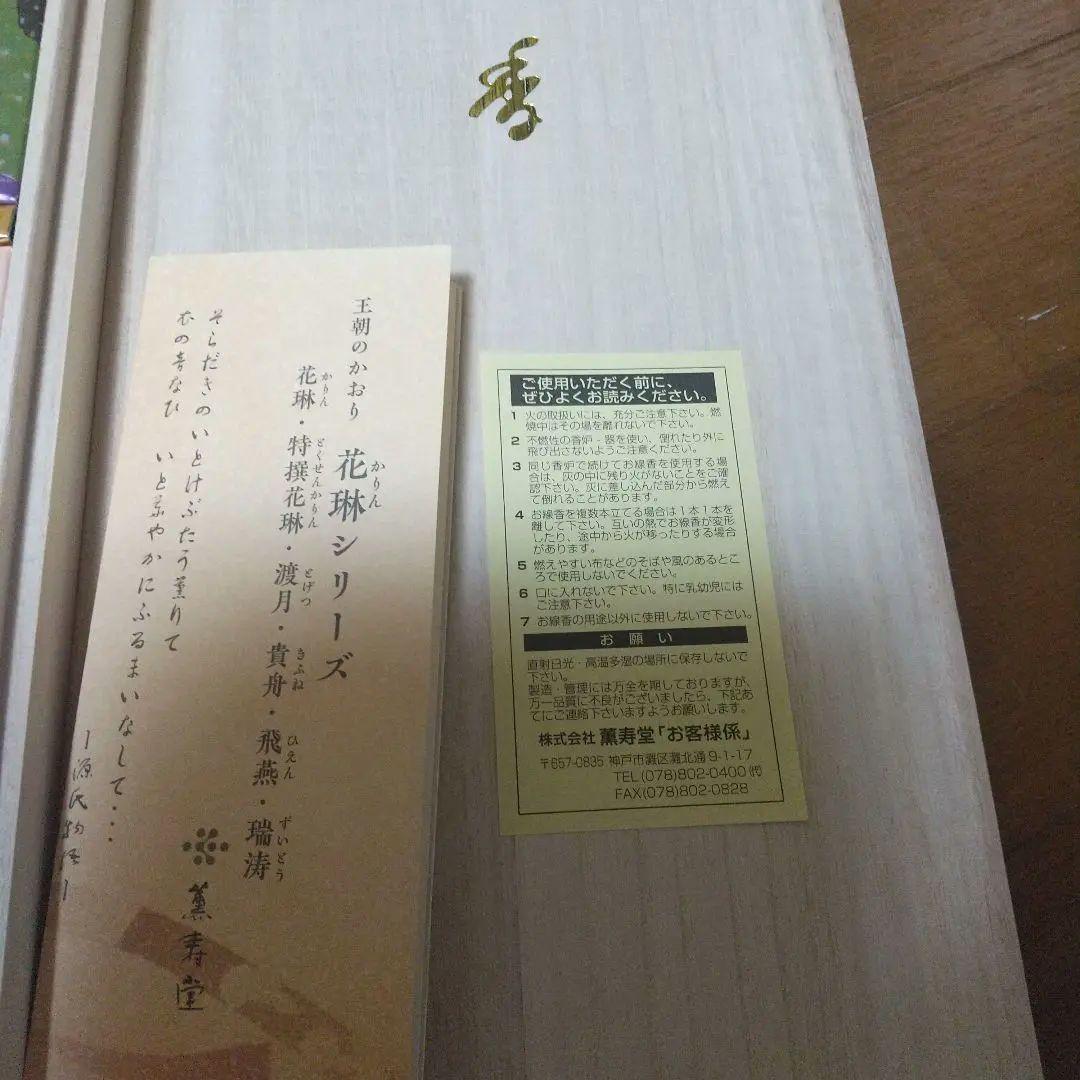 香
王朝のかおり 花琳シリーズ
かりん
花琳・特撰花琳・渡月・貴舟・飛燕・瑞涛
かりん とくせんかりん とげつ きふね ひえん ずいとう
そらだきのいとけぶたう薫りて
衣の音なひ いと花やかにふるまいなして・・・
ー源氏物語ー
薫寿堂
ご使用いただく前に、
ぜひよくお読みください。
1 火の取扱いには、充分ご注意下さい。燃
焼中はその場を離れないで下さい。
2 不燃性の香炉・器を使い、倒れたり外に
飛び出さないようご注意ください。
3 同じ香炉で続けてお線香を使用する場
合は、灰の中に残り火がないことをご確
認下さい。灰に差し込んだ部分から燃え
て倒れることがあります。
4 お線香を複数本立てる場合は1本1本を
離して下さい。互いの熱でお線香が変形
したり、途中から火が移ったりする場合
があります。
5 燃えやすい布などのそばや風のあるとこ
ろで使用しないでください。
6 口に入れないで下さい。特に乳幼児には
ご注意下さい。
7 お線香の用途以外に使用しないで下さい。
お願い
直射日光・高温多湿の場所に保存しないで
下さい。
製造・管理には万全を期しておりますが、
万一品質に不良がございましたら、下記あ
てにご連絡下さいますようお願いします。
株式会社 薫寿堂「お客様係」
〒657-0835 神戸市灘区灘北通9-1-17
TEL(078)802-0400㈹
FAX(078)802-0828